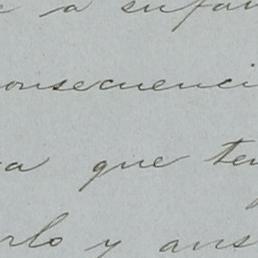 a sufan
onsecuenci
a que ten
rlo y aus